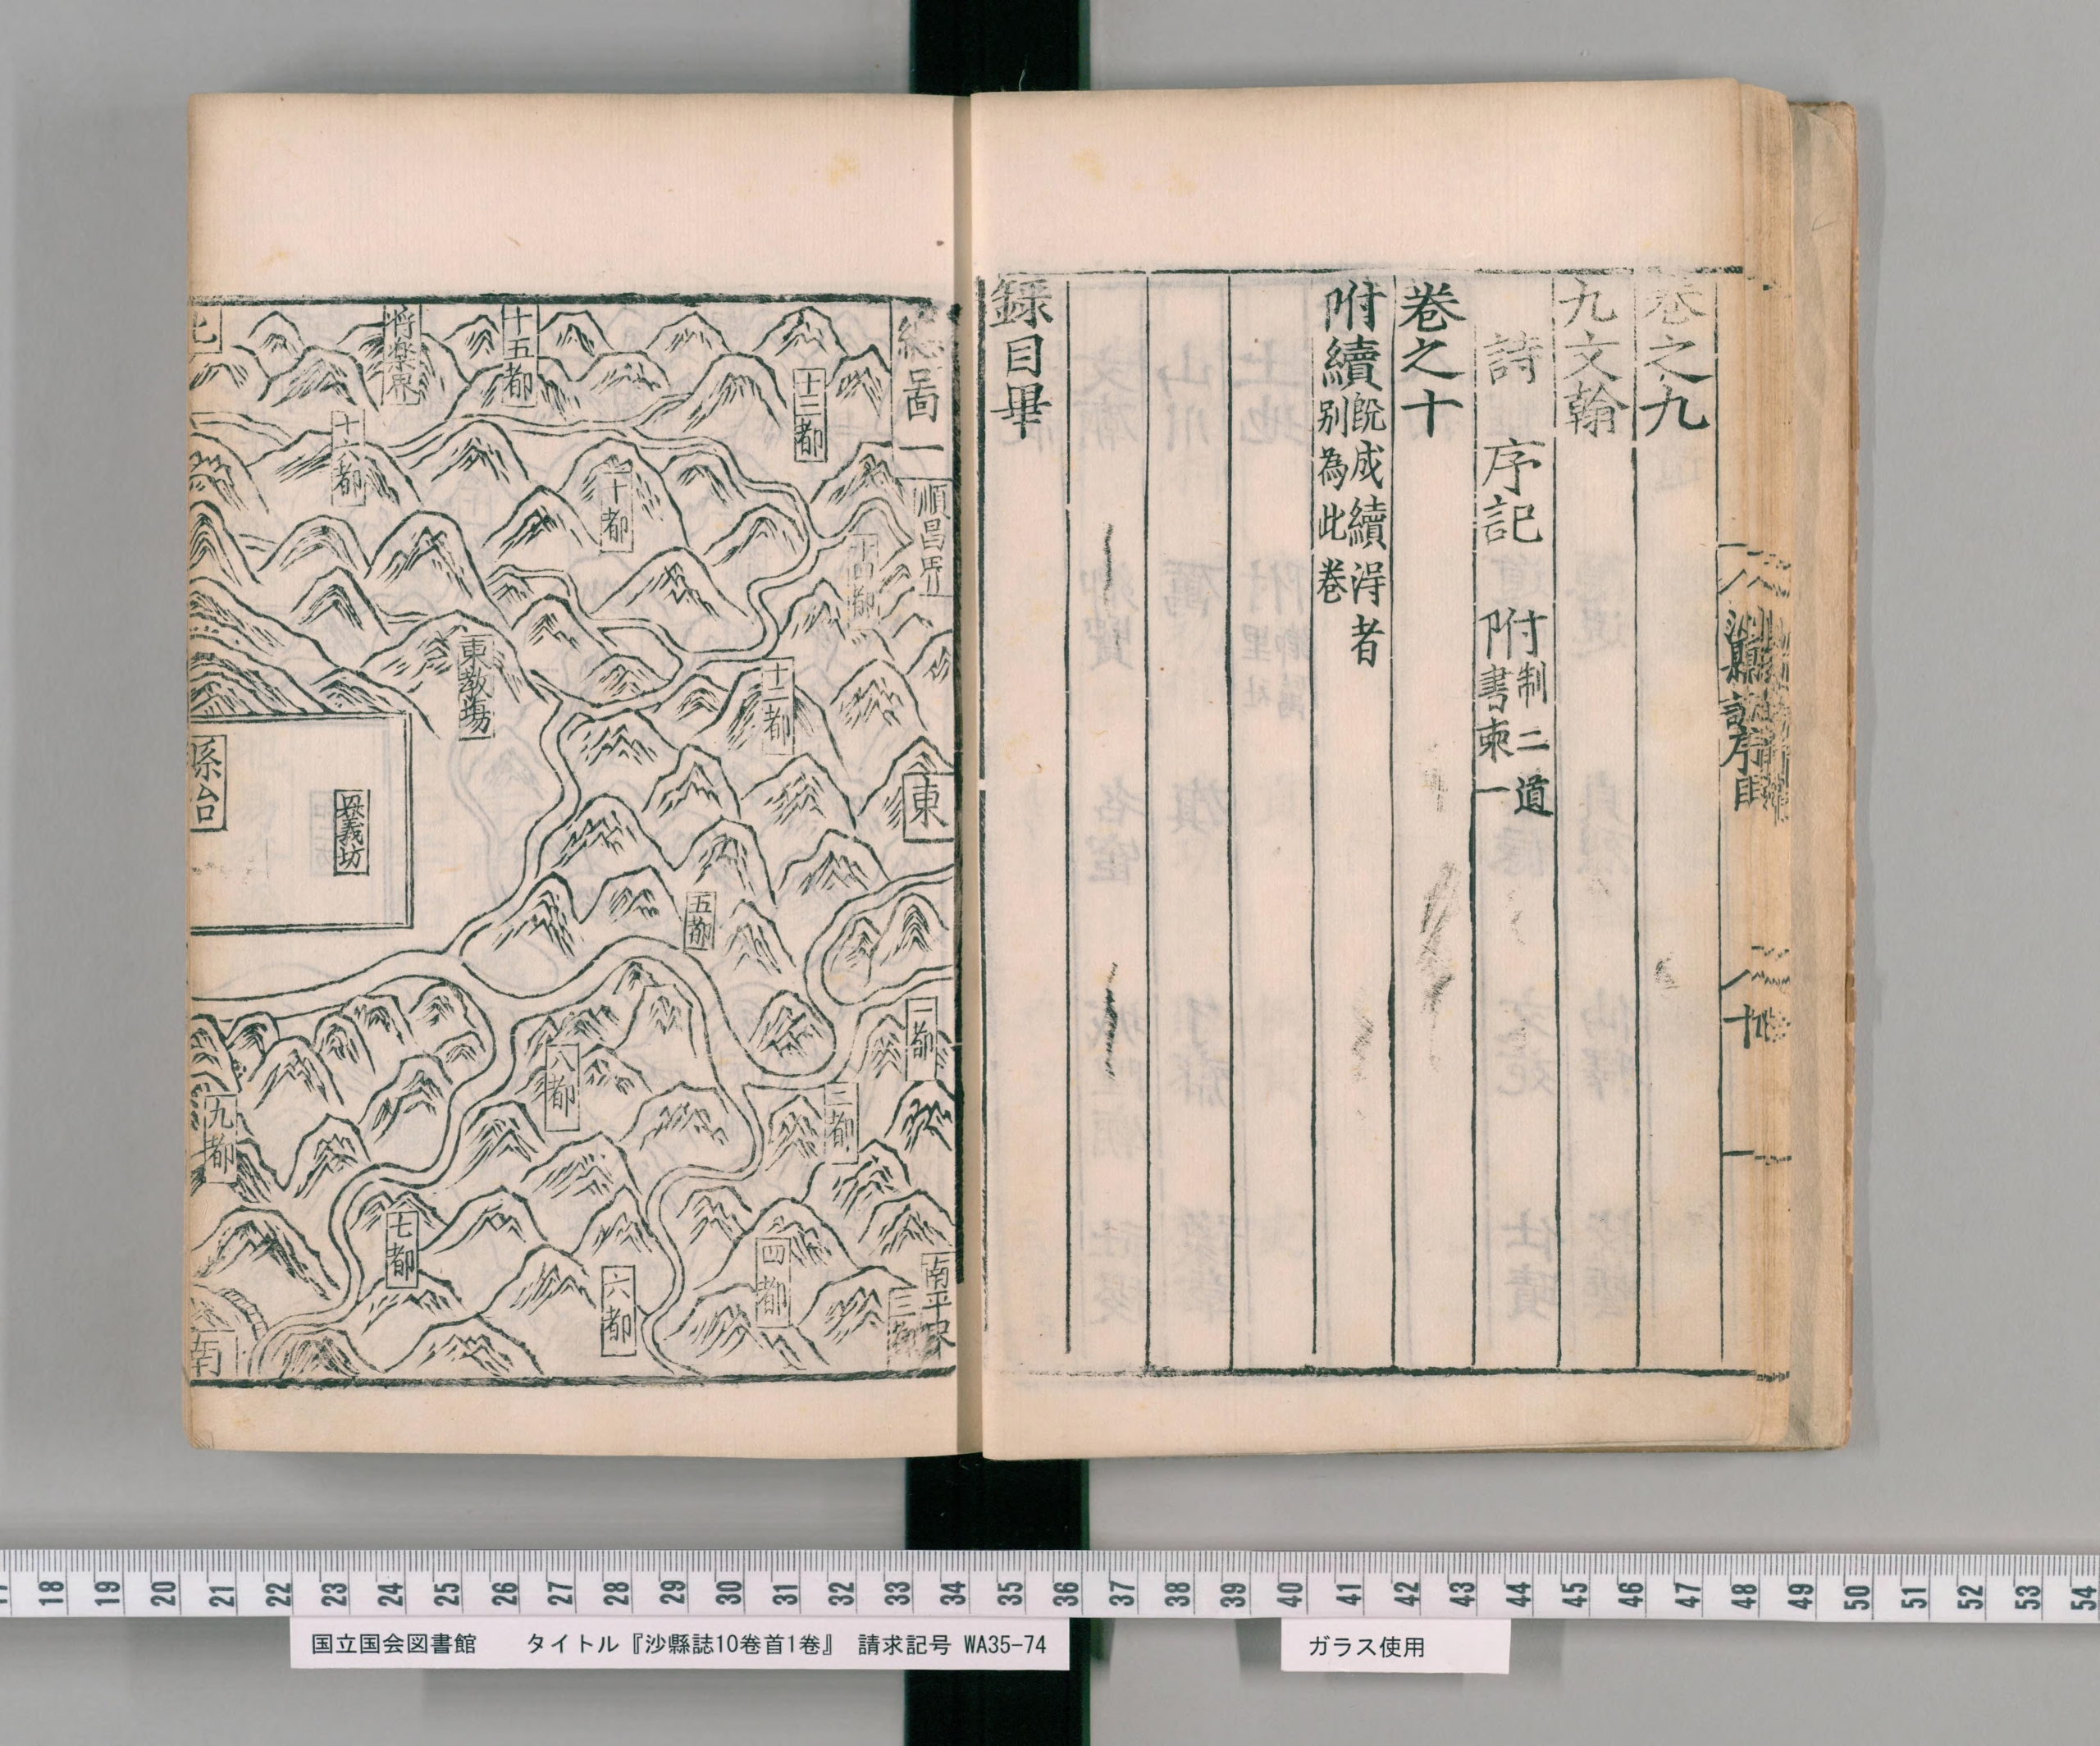 卷之九
九文翰
詩 序記 附制二道書柬一
卷之十
附續既成續得者別為此卷
錄目畢
總啚一
順昌界
十三都
十四都
十五都
將楽界
北
十六都
十都
十二都
東教場
東
縣治
興義坊
五都
一都
二都
八都
九都
七都
六都
四都
三都
南平界
南
17 18 19 20 21 22 23 24 25 26 27 28 29 30 31 32 33 34 35 36 37 38 39 40 41 42 43 44 45 46 47 48 49 50 51 52 53 54
国立国会図書館 タイトル『沙縣誌10巻首1巻』 請求記号 WA35-74
ガラス使用